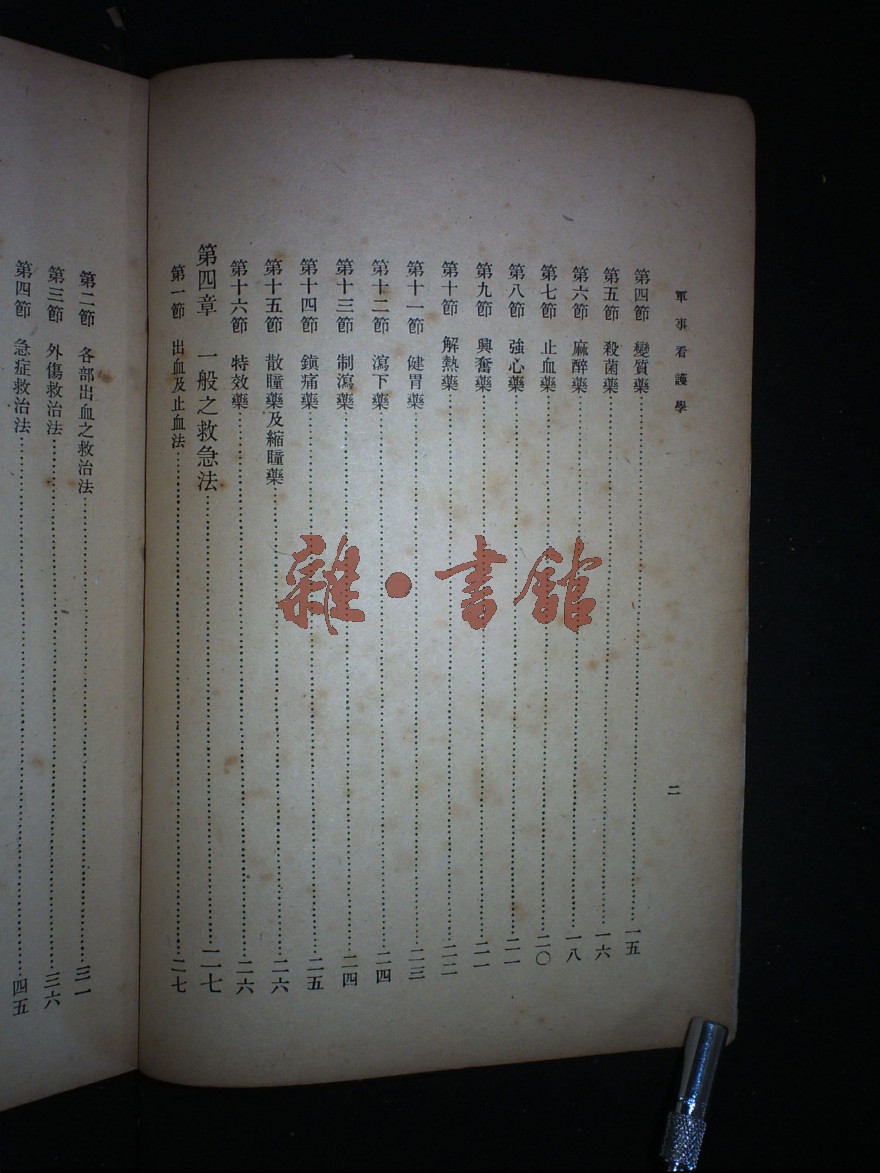 軍事看護學
二
第四節 變質藥……一五
第五節 殺菌藥……一六
第六節 麻醉藥……一八
第七節 止血藥……二〇
第八節 強心藥……二一
第九節 興奮藥……二一
第十節 解熱藥……二二
第十一節 健胃藥……二三
第十二節 瀉下藥……二四
第十三節 制瀉藥……二四
第十四節 鎮痛藥……二五
第十五節 散瞳藥及縮瞳藥……二六
第十六節 特效藥……二六
第四章 一般之救急法……二七
第一節 出血及止血法……二七
第二節 各部出血之救治法……三一
第三節 外傷救治法……三六
第四節 急症救治法……四五
雜·書館